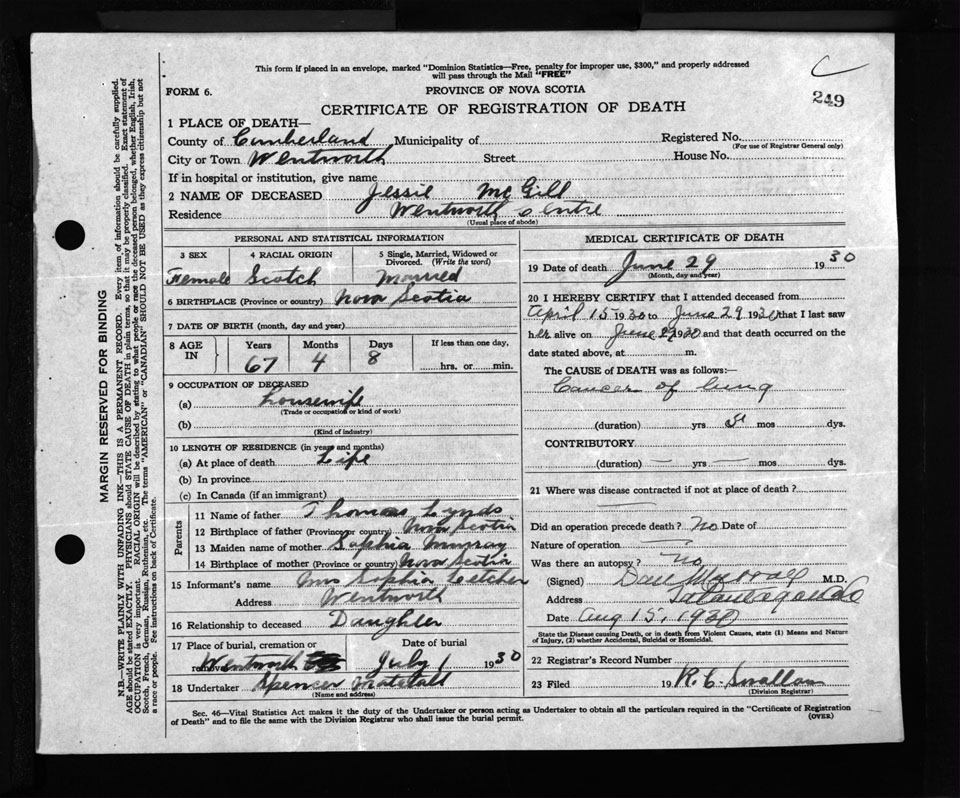 This form if placed in an envelope, marked "Dominion Statistics—Free, penalty for improper use, $300," and properly addressed
will pass through the Mail "FREE"
C
249
FORM 6.
PROVINCE OF NOVA SCOTIA
CERTIFICATE OF REGISTRATION OF DEATH
1 PLACE OF DEATH—
County of Cumberland Municipality of Registered No.
(For use of Registrar General only)
City or Town Wentworth Street House No.
If in hospital or institution, give name
2 NAME OF DECEASED Jessie McGill
Residence Wentworth Centre
(Usual place of abode)
PERSONAL AND STATISTICAL INFORMATION
3 SEX 4 RACIAL ORIGIN 5 Single, Married, Widowed or
Divorced. (Write the word)
Female Scotch Married
6 BIRTHPLACE (Province or country) Nova Scotia
7 DATE OF BIRTH (month, day and year)
8 AGE IN Years Months Days If less than one day,
67 4 8 hrs. or min.
9 OCCUPATION OF DECEASED
(a) housewife
(Trade or occupation or kind of work)
(b)
(Kind of industry)
10 LENGTH OF RESIDENCE (in years and months)
(a) At place of death Life
(b) In province
(c) In Canada (if an immigrant)
Parents
11 Name of father Thomas Lynds
12 Birthplace of father (Province or country) Nova Scotia
13 Maiden name of mother Sophia Murray
14 Birthplace of mother (Province or country) Nova Scotia
15 Informant's name Mrs Sophia Letcher
Address Wentworth
16 Relationship to deceased Daughter
17 Place of burial, cremation or Date of burial
removal Wentworth July 1 1930
18 Undertaker Spencer
(Name and address)
MEDICAL CERTIFICATE OF DEATH
19 Date of death June 29 1930
(Month, day and year)
20 I HEREBY CERTIFY that I attended deceased from
April 15 1930 to June 29 1930 that I last saw
her alive on June 29 1930 and that death occurred on the
date stated above, at m.
The CAUSE of DEATH was as follows:
Cancer of lung
(duration) yrs mos dys.
CONTRIBUTORY
(duration) — yrs — mos dys.
21 Where was disease contracted if not at place of death?
Did an operation precede death? No Date of
Nature of operation
Was there an autopsy? No
(Signed) M.D.
Address
Date Aug 15, 1930
State the Disease causing Death, or in death from Violent Causes, state (1) Means and Nature
of Injury, (2) whether Accidental, Suicidal or Homicidal.
22 Registrar's Record Number
23 Filed 19 R. C. Smallan
(Division Registrar)
Sec. 46—Vital Statistics Act makes it the duty of the Undertaker or person acting as Undertaker to obtain all the particulars required in the "Certificate of Registration
of Death" and to file the same with the Division Registrar who shall issue the burial permit. (OVER)
MARGIN RESERVED FOR BINDING
N.B.—WRITE PLAINLY WITH UNFADING INK—THIS IS A PERMANENT RECORD. Every item of information should be carefully supplied.
AGE should be stated EXACTLY. PHYSICIANS should STATE CAUSE OF DEATH in plain terms, so that it may be properly classified. Exact statement of
OCCUPATION is very important. RACIAL ORIGIN will be described by stating to what people or race the deceased person belonged, whether English, Irish,
Scotch, French, German, Russian, Ruthenian, etc. The terms "AMERICAN" or "CANADIAN" SHOULD NOT BE USED as they express citizenship but not
a race or people. See instructions on back of Certificate.